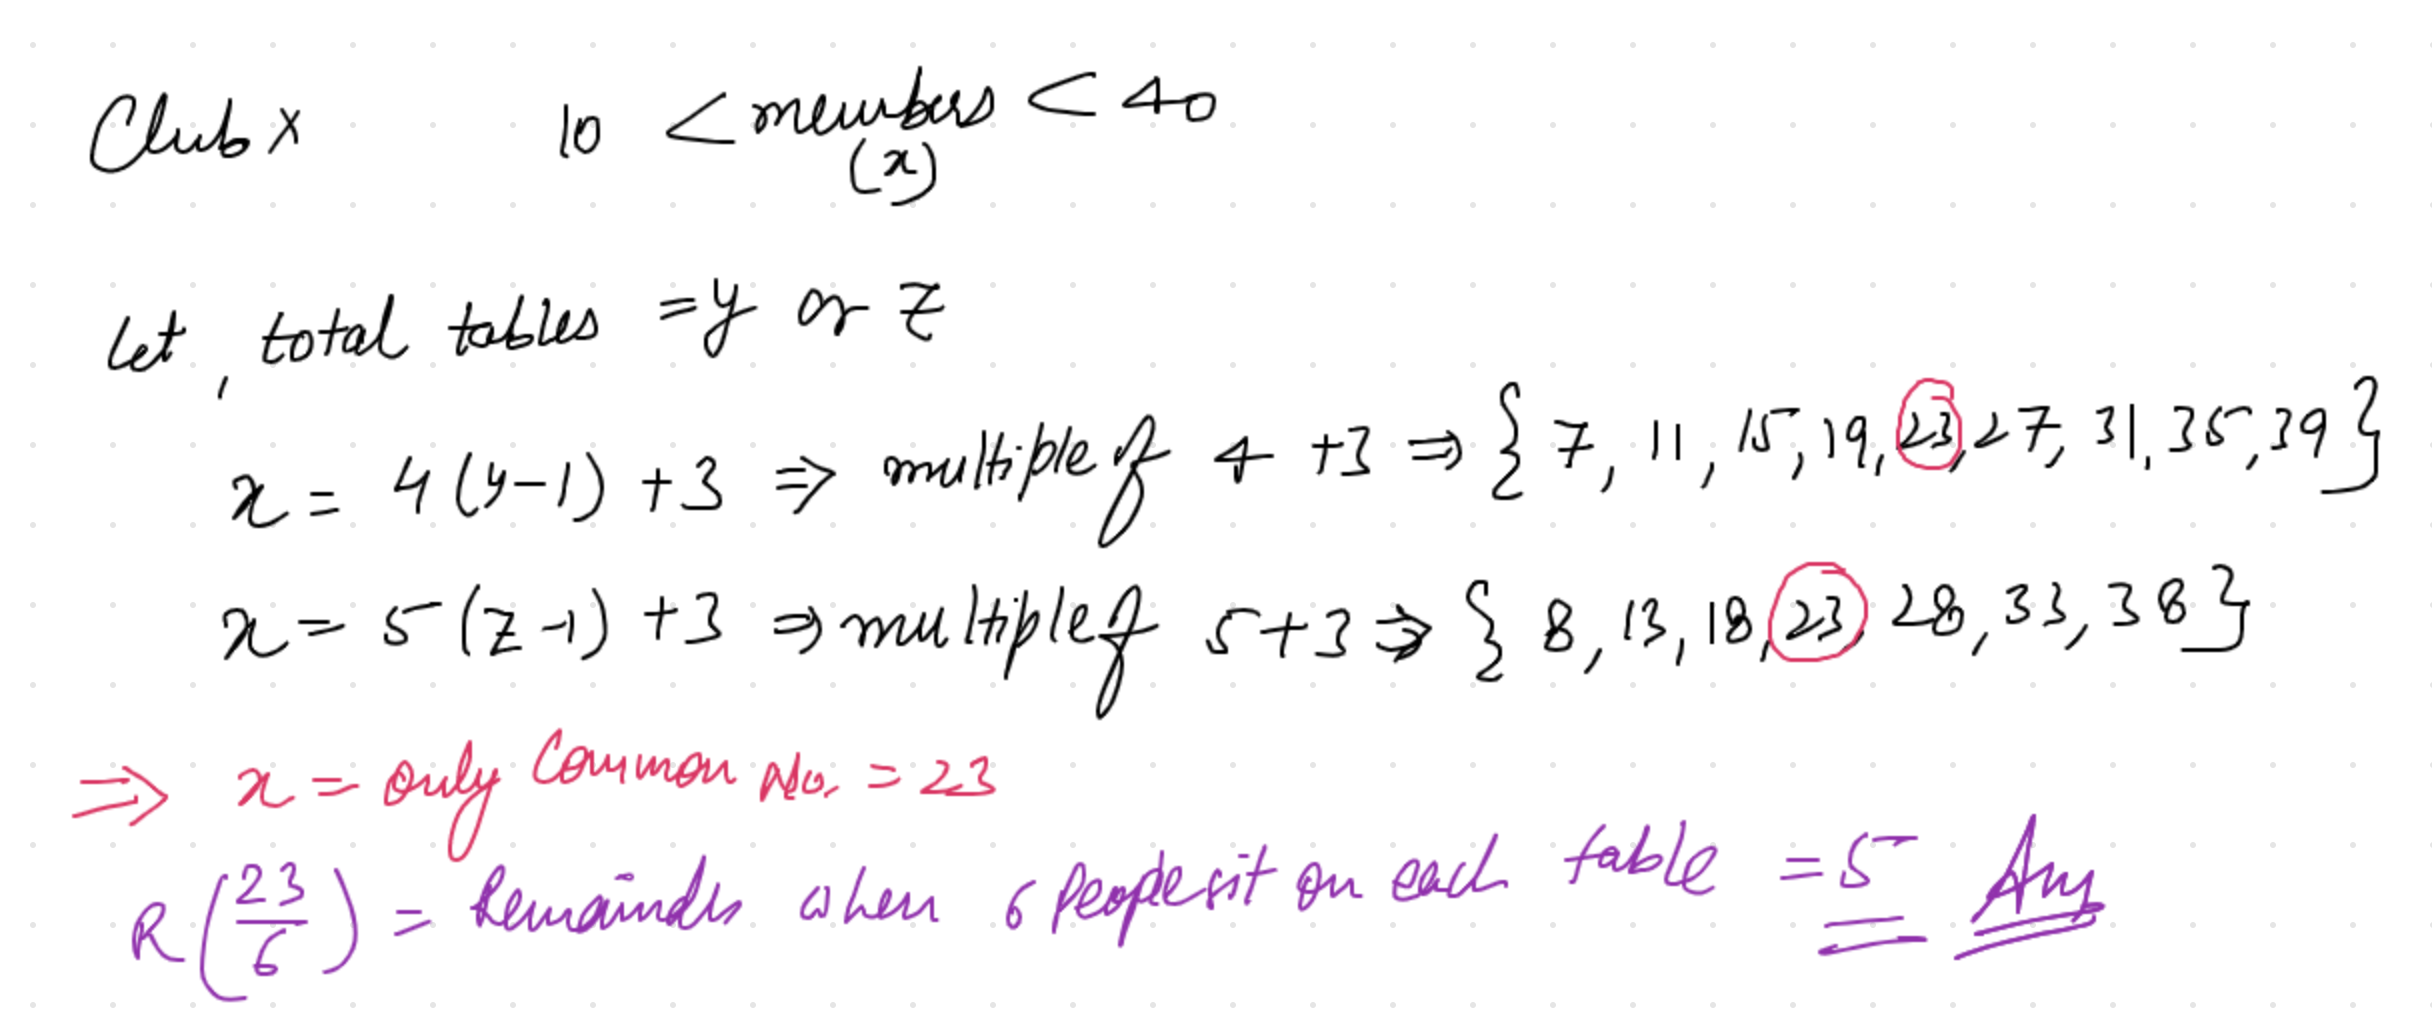 Club X 10 < members < 40
(x)
Let, total tables = y or z
x = 4(y-1) +3 ⇒ multiple of 4 +3 ⇒ { 7, 11, 15, 19, 23, 27, 31, 35, 39 }
x = 5(z-1) +3 ⇒ multiple of 5+3 ⇒ { 8, 13, 18, 23, 28, 33, 38 }
⇒ x = only Common No. = 23
R(23/6) = Remainder when 6 People sit on each table = 5 Ans